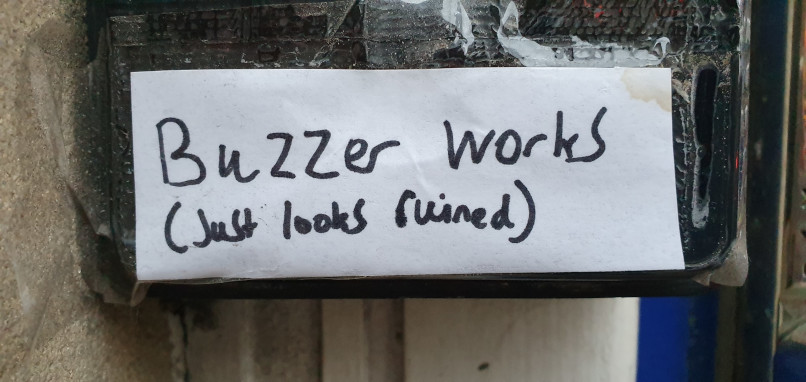 Buzzer works
(Just looks ruined)